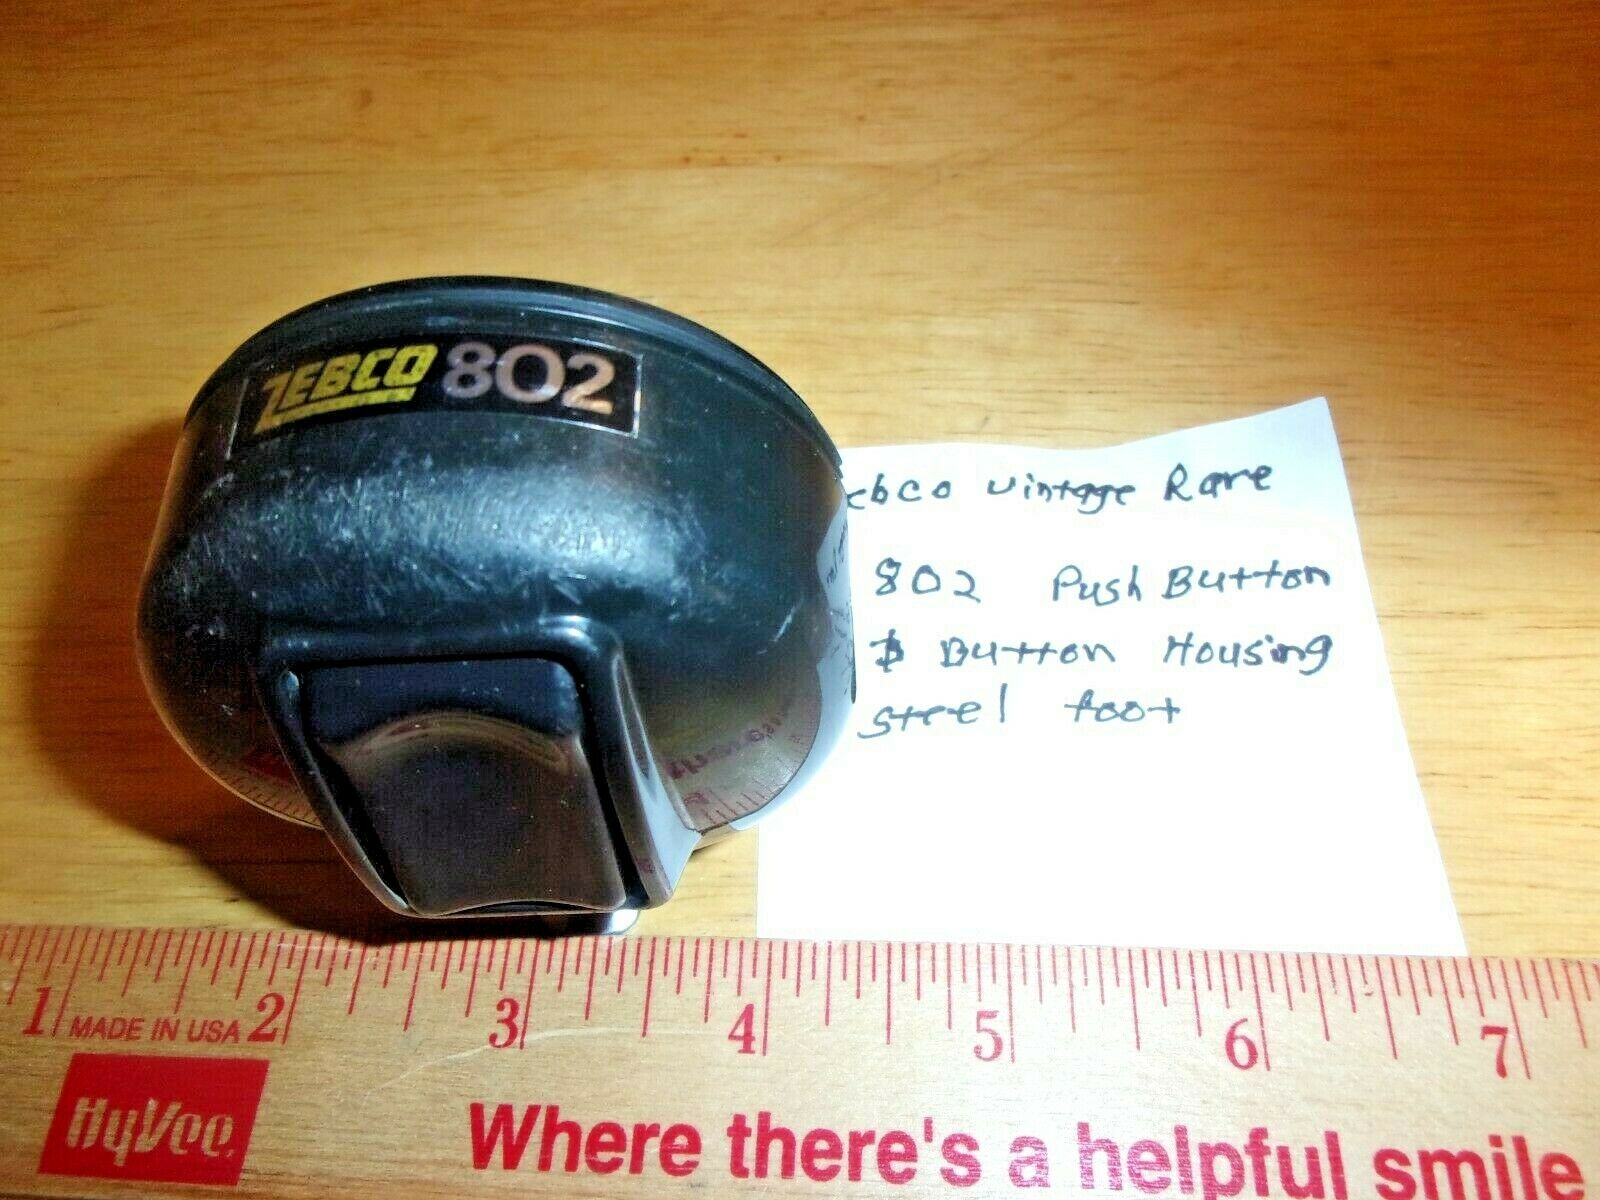 ZEBCO 802
ebco vintage Rare
802 Push Button
Button Housing
steel foot
1 2 3 4 5 6 7
MADE IN USA
HyVee
Where there's a helpful smile